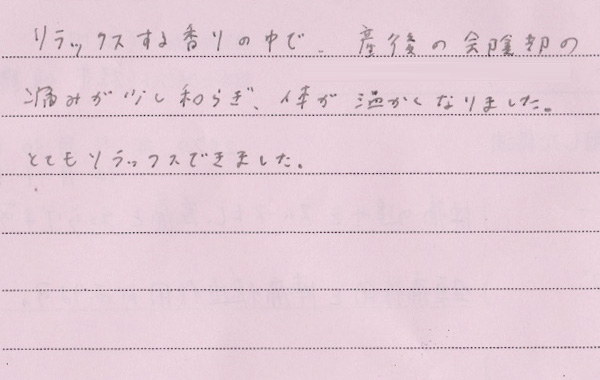 リラックスする香りの中で、産後の会陰部の
痛みが少し和らぎ、体が温かくなりました。
とてもリラックスできました。